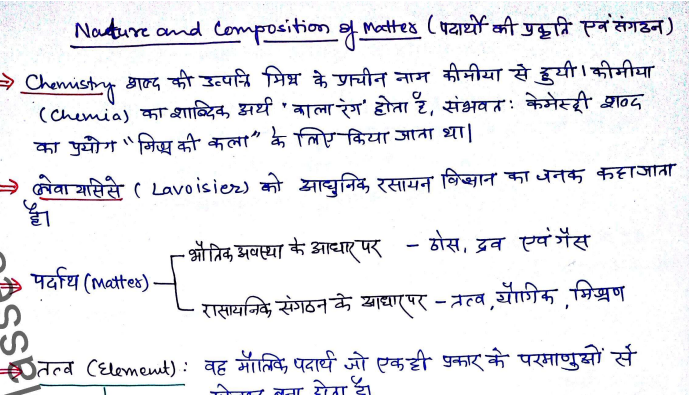 Nature and Composition of Matter (पदार्थों की प्रकृति एवं संगठन)
⇒ Chemistry शब्द की उत्पत्ति मिश्र के प्राचीन नाम कीमीया से हुयी। कीमीया
(Chemia) का शाब्दिक अर्थ 'काला रंग' होता है, संभवतः केमेस्ट्री शब्द
का प्रयोग "मिश्र की कला" के लिए किया जाता था|
⇒ लेवायसिसे (Lavoisier) को आधुनिक रसायन विज्ञान का जनक कहा जाता
है।
भौतिक अवस्था के आधार पर - ठोस, द्रव एवं गैस
⇒ पदार्थ (Matter)
रासायनिक संगठन के आधार पर - तत्व, यौगिक, मिश्रण
⇒ तत्व (Element): वह मौलिक पदार्थ जो एक ही प्रकार के परमाणुओं से
बना होता है।